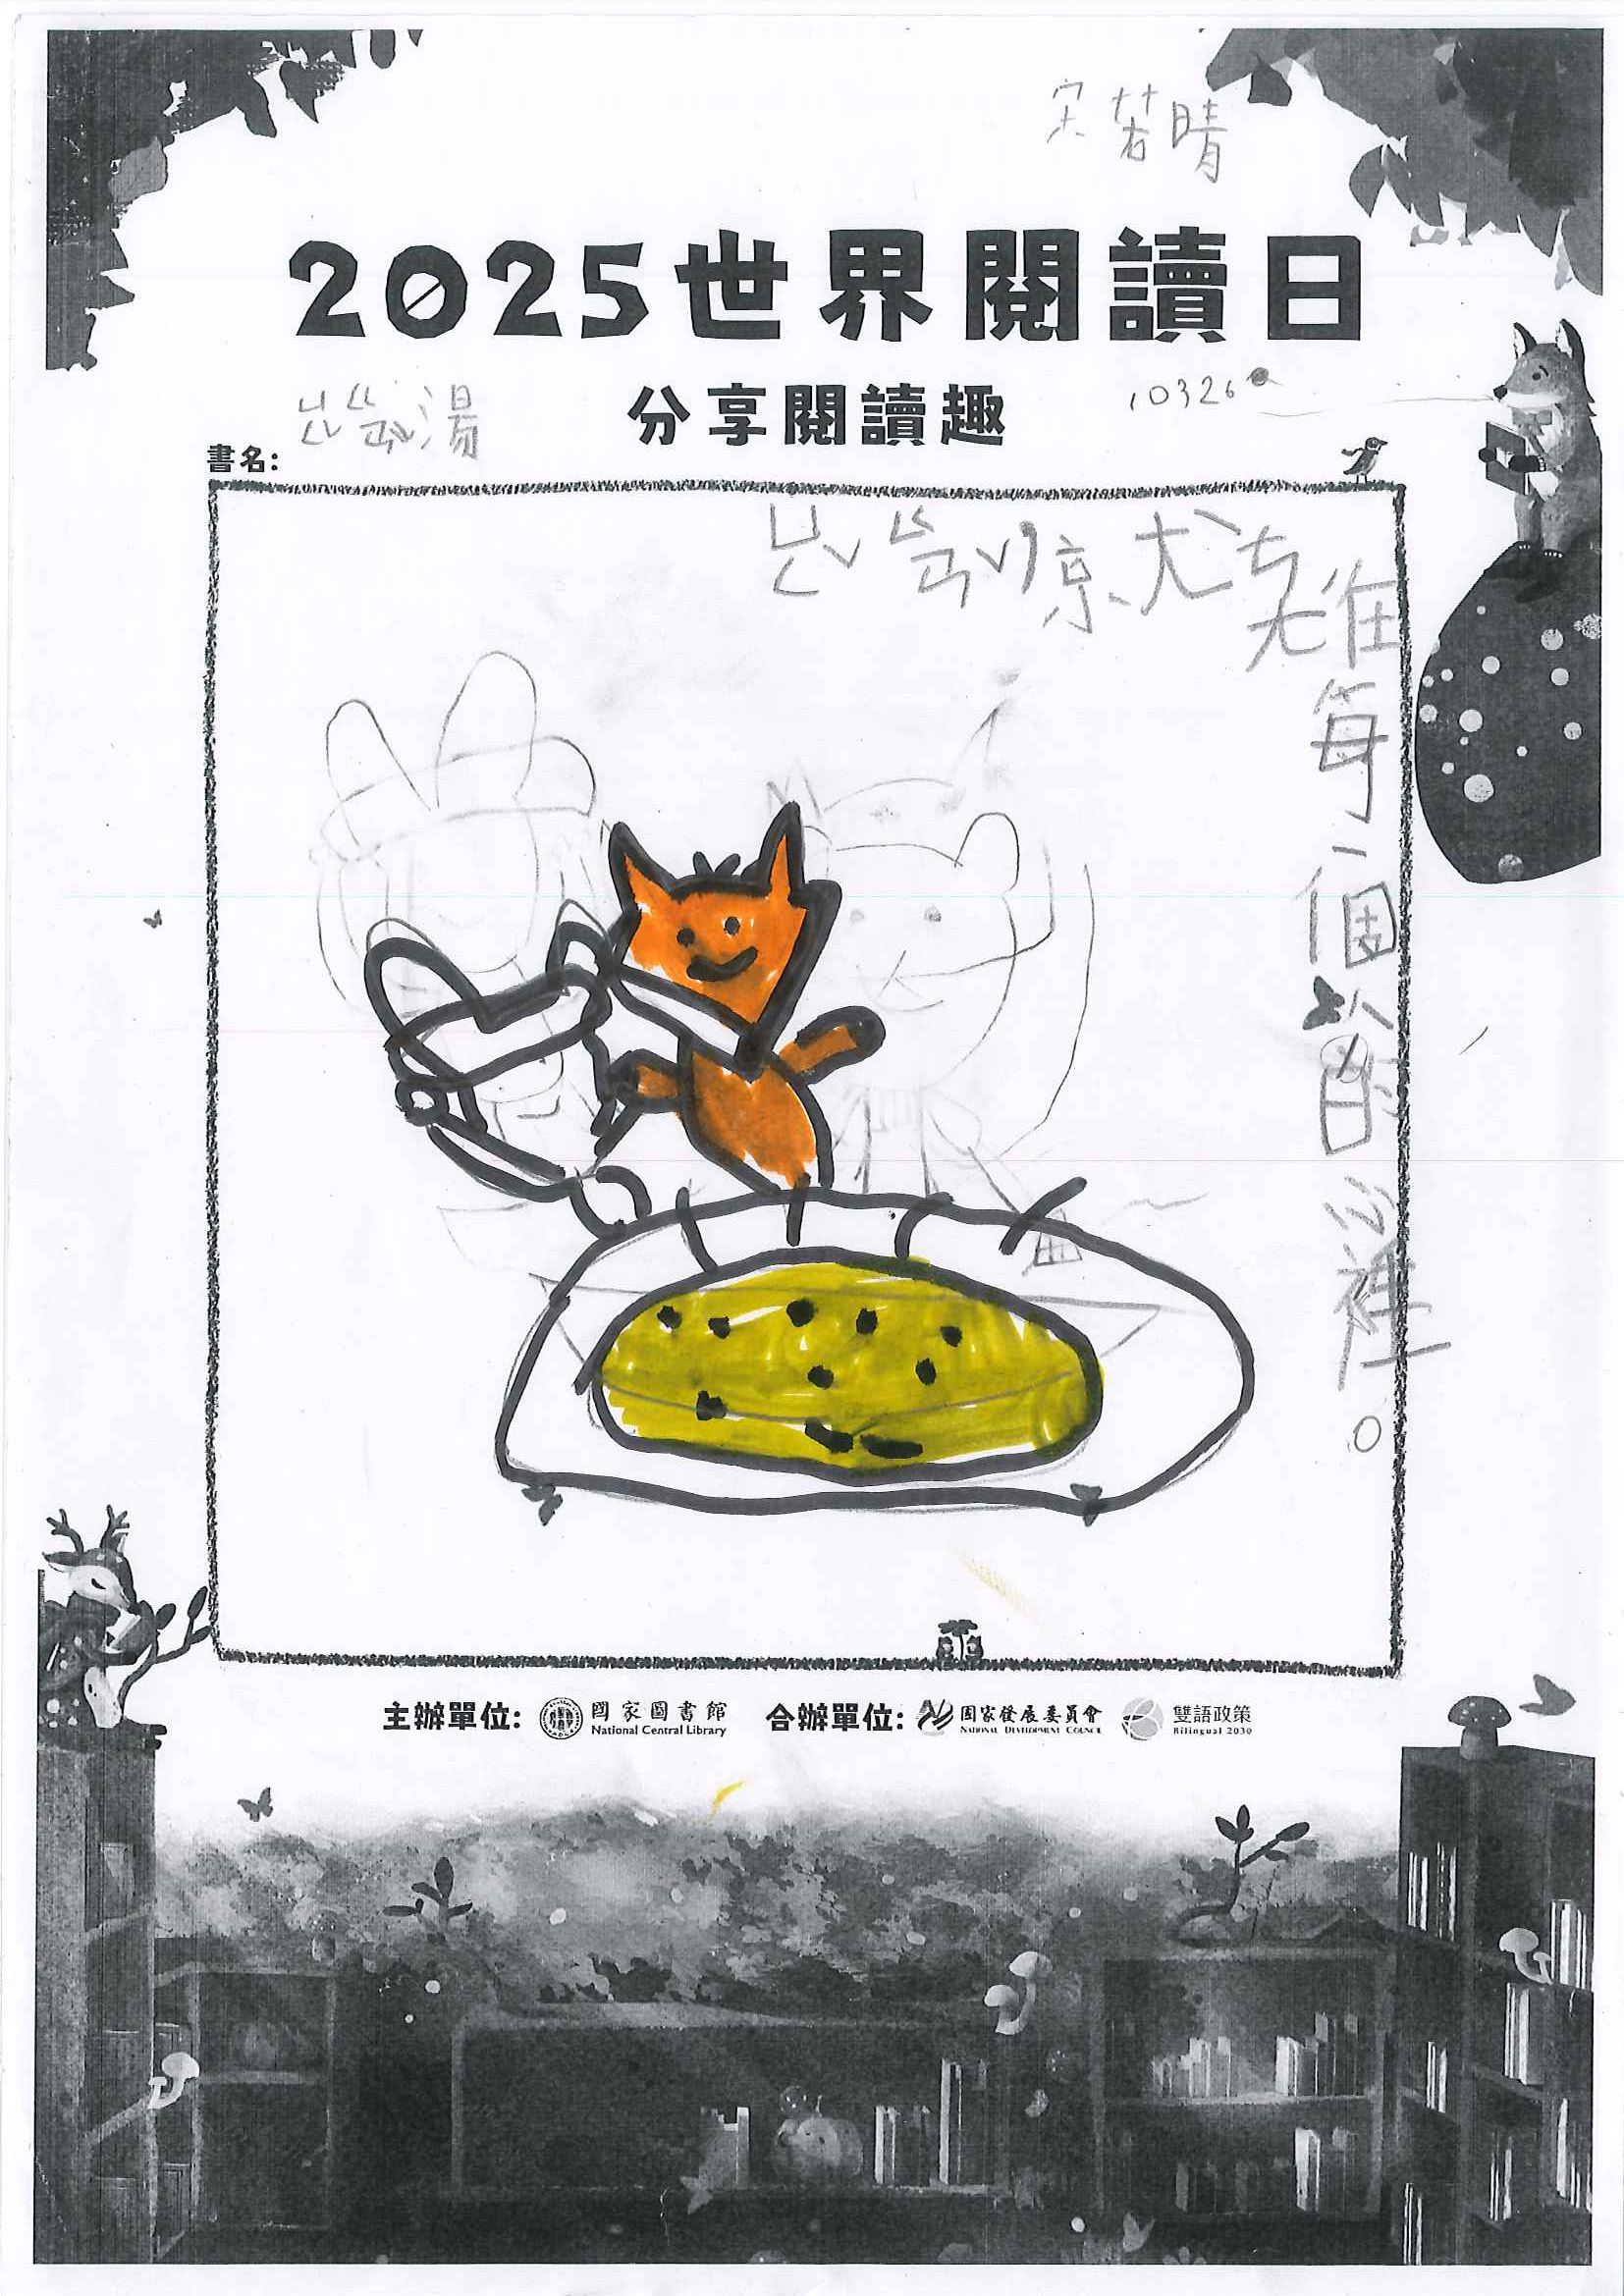 宋若晴
2025世界閱讀日
分享閱讀趣
10326
書名: ㄩㄥˇㄍㄢˇ湯
ㄩㄥˇㄍㄢˇ就ㄘㄤˊ在
每一個人的心裡。
主辦單位: 國家圖書館 National Central Library 合辦單位: 國家發展委員會 NATIONAL DEVELOPMENT COUNCIL 雙語政策 Bilingual 2030